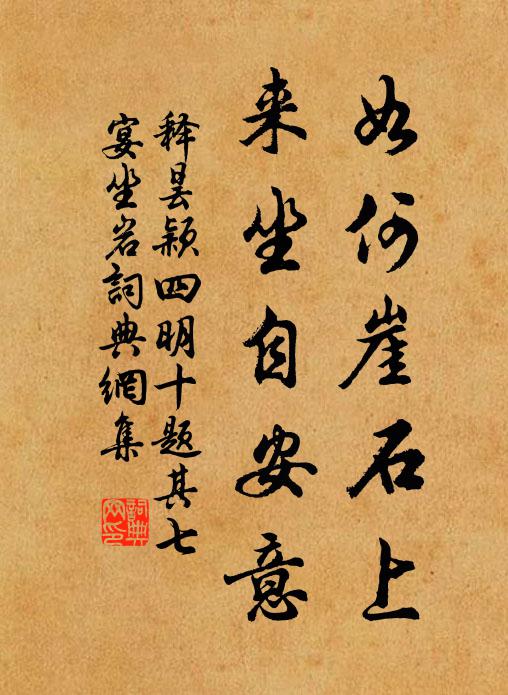 如何崖石上
来坐自安意
释昙颖四明十题其七
宴坐岩词典網集
詞典
网印